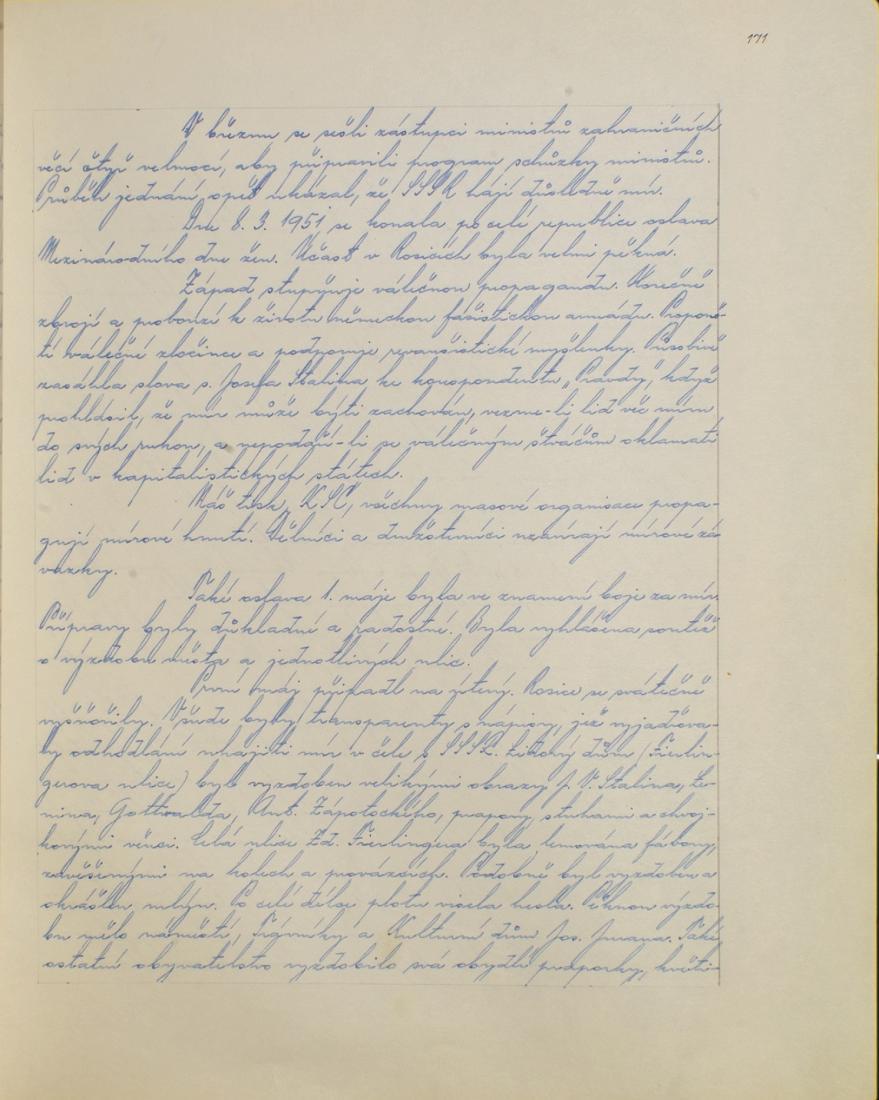 171
V březnu se sešli zástupci ministrů zahraničních
věcí čtyř velmocí, aby připravili program schůzky ministrů.
Průběh jednání opět ukázal, že SSSR hájí důsledně mír.
Dne 8. 3. 1951 se konala po celé republice oslava
Mezinárodního dne žen. Účast v Rosicích byla velmi pěkná.
Západ stupňuje válečnou propagandu. Horečně
zbrojí a probouzí k životu německou fašistickou armádu. Propouš-
tí válečné zločince a podporuje revanšistické myšlenky. Působivě
zasáhla slova s. Josefa Stalina ke korespondentu „Pravdy", když
prohlásil, že mír může býti zachován, vezme-li lid věc míru
do svých rukou, a nepodaří-li se válečným štváčům oklamati
lid v kapitalistických státech.
Náš tisk, KSČ, všechny masové organisace propa-
gují mírové hnutí. Dělníci a družstevníci uzavírají mírové zá
vazky.
Také oslava 1. máje byla ve znamení boje za mír.
Přípravy byly důkladné a radostné. Byla vyhlášena soutěž
o výzdobu města a jednotlivých ulic.
První máj připadl na úterý. Rosice se svátečně
vyšňořily. Všude byly transparenty s nápisy, jež vyjadřova-
ly odhodlání uhájiti mír v čele s SSSR. Lidový dům (Fierlin-
gerova ulice) byl vyzdoben velikými obrazy J. V. Stalina, Le-
nina, Gottwalda, Ant. Zápotockého, prapory, stuhami a chvoj-
kovými věnci. Celá ulice Zd. Fierlingera byla lemována fábory,
zavěšenými na holech a provázcích. Podobně byl vyzdoben a
okrášlen mlýn. Po celé délce plotu visela hesla. Pěknou výzdo-
bu mělo náměstí, Trávníky a Kulturní dům Jos. Jurana. Také
ostatní obyvatelstvo vyzdobilo svá obydlí praporky, květi-